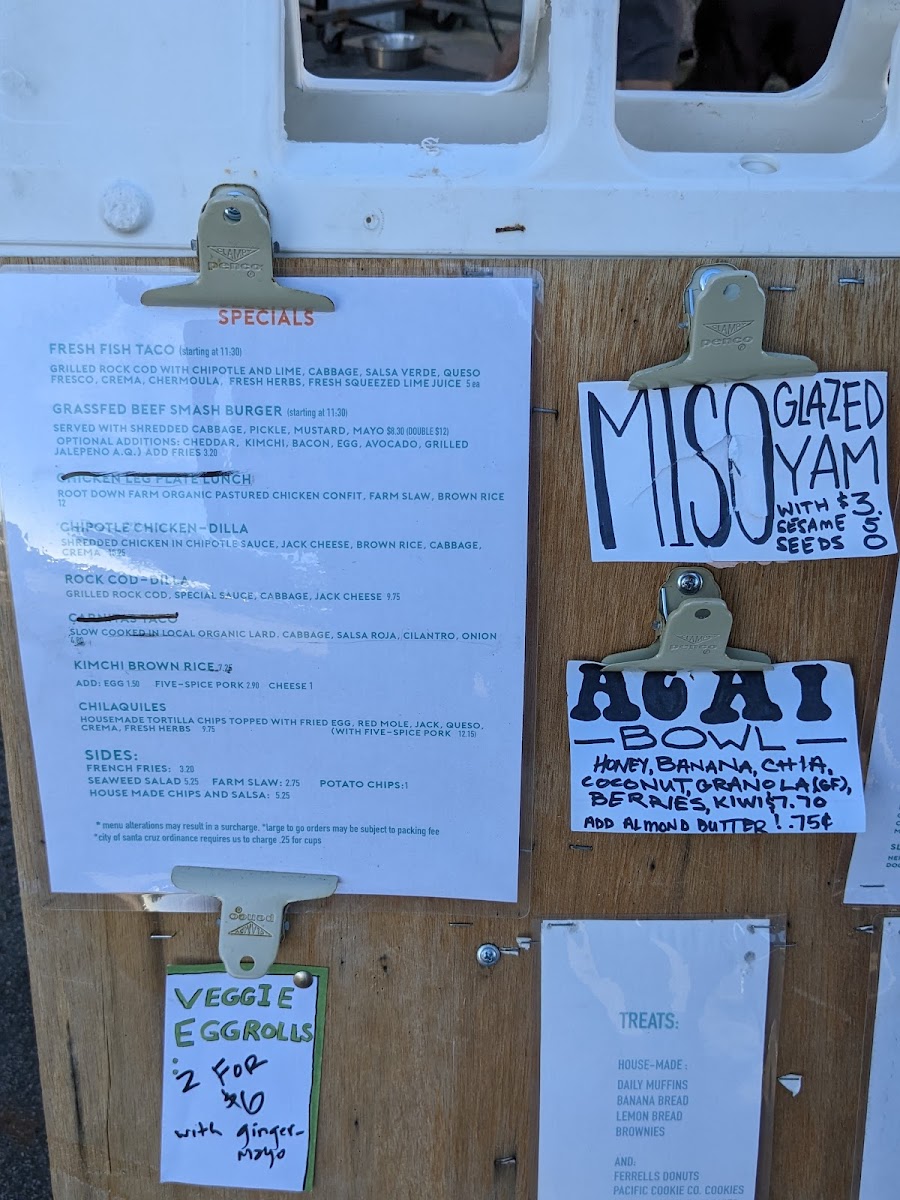 SPECIALS
FRESH FISH TACO (starting at 11:30)
GRILLED ROCK COD WITH CHIPOTLE AND LIME, CABBAGE, SALSA VERDE, QUESO
FRESCO, CREMA, CHERMOULA, FRESH HERBS, FRESH SQUEEZED LIME JUICE 5 ea
GRASSFED BEEF SMASH BURGER (starting at 11:30)
SERVED WITH SHREDDED CABBAGE, PICKLE, MUSTARD, MAYO $8.30 (DOUBLE $12)
OPTIONAL ADDITIONS: CHEDDAR, KIMCHI, BACON, EGG, AVOCADO, GRILLED
JALEPENO A.Q.) ADD FRIES 3.20
CHICKEN LEG PLATE LUNCH
ROOT DOWN FARM ORGANIC PASTURED CHICKEN CONFIT, FARM SLAW, BROWN RICE
12
CHIPOTLE CHICKEN-DILLA
SHREDDED CHICKEN IN CHIPOTLE SAUCE, JACK CHEESE, BROWN RICE, CABBAGE,
CREMA
ROCK COD-DILLA
GRILLED ROCK COD, SPECIAL SAUCE, CABBAGE, JACK CHEESE 9.75
CARNITAS TACO
SLOW COOKED IN LOCAL ORGANIC LARD, CABBAGE, SALSA ROJA, CILANTRO, ONION
KIMCHI BROWN RICE 7.75
ADD: EGG 1.50 FIVE-SPICE PORK 2.90 CHEESE 1
CHILAQUILES
HOUSEMADE TORTILLA CHIPS TOPPED WITH FRIED EGG, RED MOLE, JACK, QUESO,
CREMA, FRESH HERBS 9.75 (WITH FIVE-SPICE PORK 12.15)
SIDES:
FRENCH FRIES: 3.20
SEAWEED SALAD 5.25 FARM SLAW: 2.75 POTATO CHIPS:1
HOUSE MADE CHIPS AND SALSA: 5.25
* menu alterations may result in a surcharge. *large to go orders may be subject to packing fee
*city of santa cruz ordinance requires us to charge .25 for cups
MISO GLAZED
YAM
WITH $3.50
SESAME
SEEDS
ACAI
BOWL
HONEY, BANANA, CHIA,
COCONUT, GRANOLA (GF),
BERRIES, KIWI $7.70
ADD ALMOND BUTTER! .75¢
VEGGIE
EGGROLLS
: 2 FOR
$6
with ginger-
mayo
TREATS:
HOUSE-MADE :
DAILY MUFFINS
BANANA BREAD
LEMON BREAD
BROWNIES
AND:
FERRELLS DONUTS
PACIFIC COOKIE CO. COOKIES
penco
penco
penco
penco